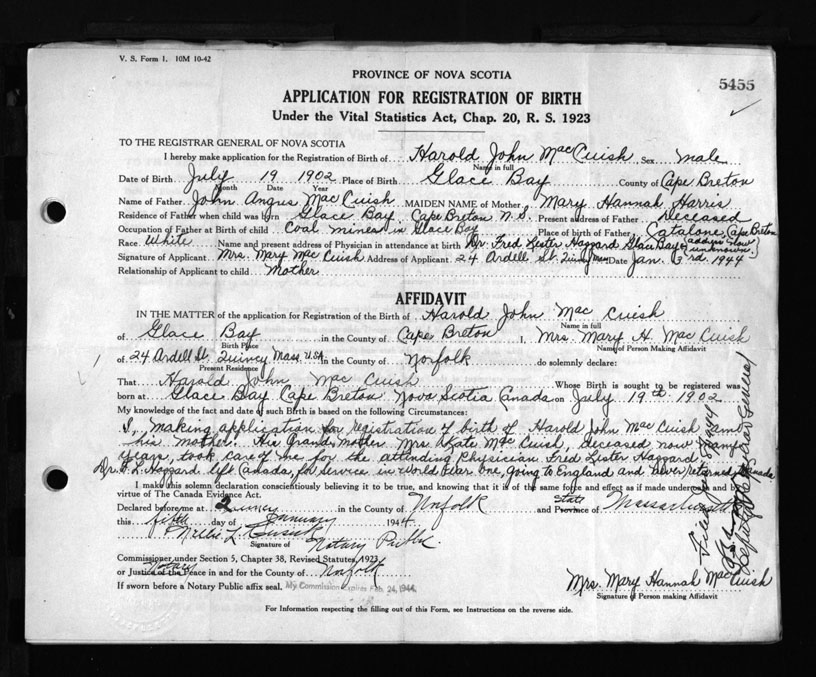 V. S. Form 1. 10M 10-42
PROVINCE OF NOVA SCOTIA
5455
APPLICATION FOR REGISTRATION OF BIRTH
Under the Vital Statistics Act, Chap. 20, R. S. 1923
TO THE REGISTRAR GENERAL OF NOVA SCOTIA
I hereby make application for the Registration of Birth of Harold John MacCuish Sex male
Name in full
Date of Birth July 19 1902 Place of Birth Glace Bay County of Cape Breton
Month Date Year
Name of Father John Angus MacCuish MAIDEN NAME of Mother Mary Hannah Harris
Residence of Father when child was born Glace Bay, Cape Breton N.S. Present address of Father Deceased
Occupation of Father at Birth of child Coal mines in Glace Bay Place of birth of Father Catalone, Cape Breton
Race White Name and present address of Physician in attendance at birth Dr. Fred Lester Haggard Glace Bay (address now unknown.)
Signature of Applicant Mrs. Mary MacCuish Address of Applicant 24 Ardell St. Quincy Mass Date Jan. 3rd. 1944
Relationship of Applicant to child Mother.
AFFIDAVIT
IN THE MATTER of the application for Registration of the Birth of Harold John MacCuish
Name in full
of Glace Bay in the County of Cape Breton I, Mrs. Mary H. MacCuish
Birth Place Name of Person Making Affidavit
of 24 Ardell St, Quincy Mass. U.S.A. in the County of Norfolk do solemnly declare:
Present Residence
That Harold John MacCuish Whose Birth is sought to be registered was
born at Glace Bay Cape Breton Nova Scotia Canada on July 19th 1902
My knowledge of the fact and date of such Birth is based on the following Circumstances:
I, making application for registration of birth of Harold John MacCuish am
his mother. His Grand mother Mrs. Kate MacCuish, deceased now many
years, took care of me for the attending Physician. Fred Lester Haggard.
Dr. F. L. Haggard. left Canada, for service in World War One, going to England and never returned to Canada
I make this solemn declaration conscientiously believing it to be true, and knowing that it is of the same force and effect as if made under oath and by
virtue of The Canada Evidence Act.
Declared before me at Quincy in the County of Norfolk and Province of State Massachusetts
this fifth day of January 1944.
Signature of Notary Public.
Commissioner under Section 5, Chapter 38, Revised Statutes, 1923
or Justice of the Peace in and for the County of Norfolk
Notary
If sworn before a Notary Public affix seal. My Commission Expires Feb. 24, 1944
Mrs. Mary Hannah MacCuish
Signature of Person making Affidavit
For Information respecting the filling out of this Form, see Instructions on the reverse side.
Deputy Registrar General